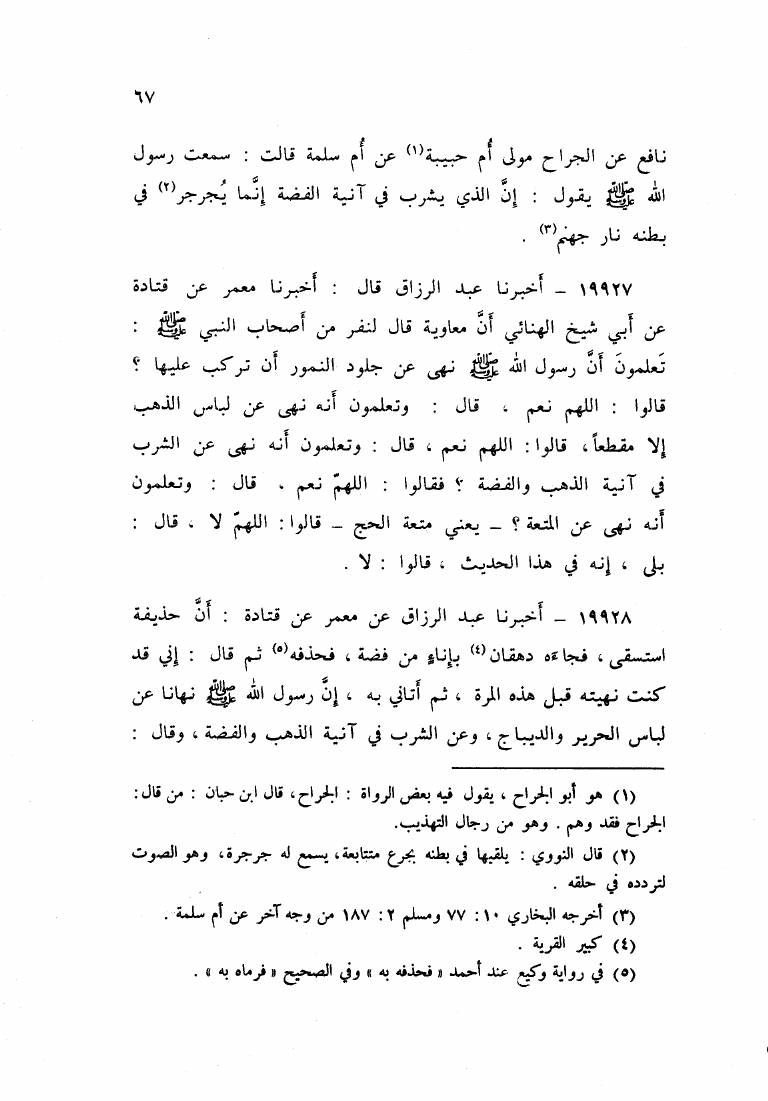 ٦٧
نافع عن الجراح مولى أُم حبيبة(١) عن أُم سلمة قالت : سمعت رسول
الله ﷺ يقول : إنَّ الذي يشرب في آنية الفضة إنَّما يُجرجر(٢) في
بطنه نار جهنم(٣) .
١٩٩٢٧ – أخبرنا عبد الرزاق قال : أخبرنا معمر عن قتادة
عن أبي شيخ الهنائي أنَّ معاوية قال لنفر من أصحاب النبي ﷺ :
تَعلمونَ أنَّ رسول الله ﷺ نهى عن جلود النمور أن تركب عليها ؟
قالوا : اللهم نعم ، قال : وتعلمون أنه نهى عن لباس الذهب
إلا مقطعاً، قالوا : اللهم نعم ، قال : وتعلمون أنه نهى عن الشرب
في آنية الذهب والفضة ؟ فقالوا : اللهمّ نعم . قال : وتعلمون
أنه نهى عن المتعة ؟ – يعني متعة الحج – قالوا : اللهمّ لا ، قال :
بلى ، إنه في هذا الحديث ، قالوا : لا .
١٩٩٢٨ – أخبرنا عبد الرزاق عن معمر عن قتادة : أنَّ حذيفة
استسقى ، فجاءه دهقان(٤) بإناءٍ من فضة ، فحذفه(٥) ثم قال : إني قد
كنت نهيته قبل هذه المرة ، ثم أتاني به ، إنَّ رسول الله ﷺ نهانا عن
لباس الحرير والديباج ، وعن الشرب في آنية الذهب والفضة ، وقال :
(١) هو أبو الجراح ، يقول فيه بعض الرواة : الجراح، قال ابن حبان : من قال:
الجراح فقد وهم . وهو من رجال التهذيب.
(٢) قال النووي : يلقيها في بطنه بجرع متتابعة، يسمع له جرجرة، وهو الصوت
لتردده في حلقه .
(٣) أخرجه البخاري ١٠: ٧٧ ومسلم ٢: ١٨٧ من وجه آخر عن أم سلمة .
(٤) كبير القرية .
(٥) في رواية وكيع عند أحمد « فحذفه به » وفي الصحيح « فرماه به » .